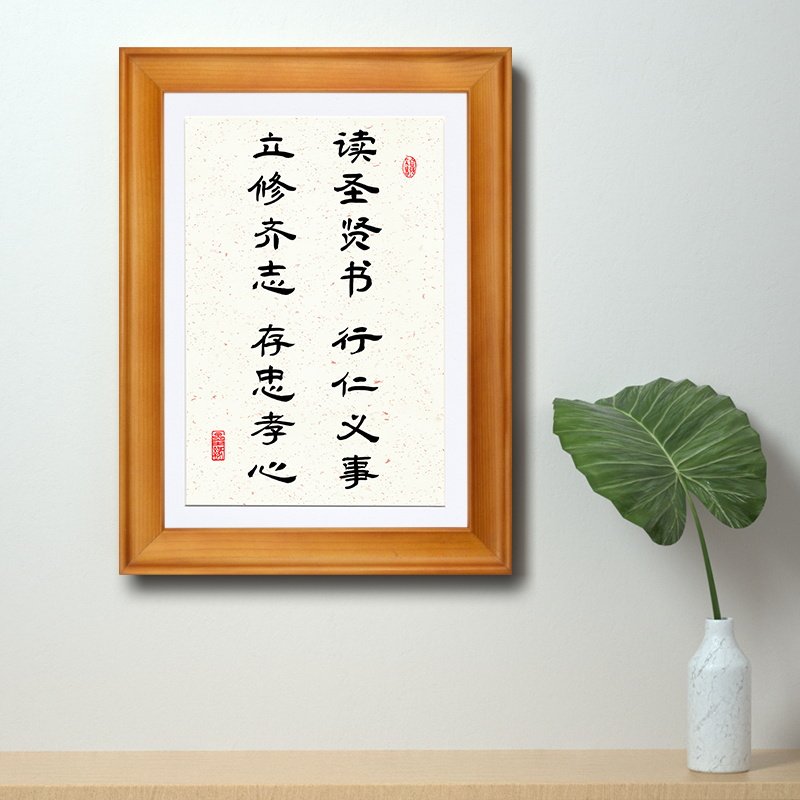 读圣贤书 行仁义事
立修齐志 存忠孝心